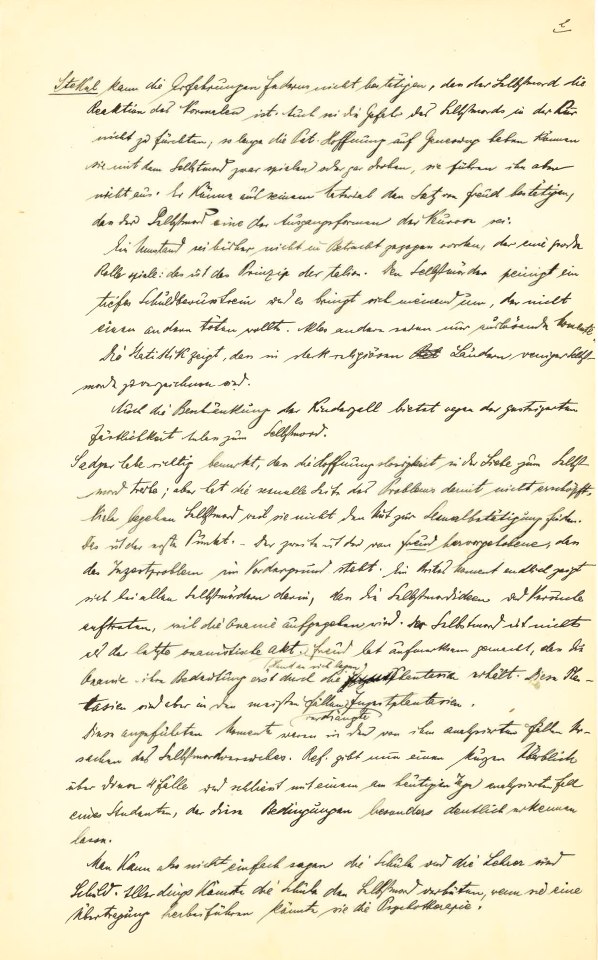 2
Stekel kann die Erfahrungen Federns nicht bestätigen, dass der Selbstmord die
Reaktion des Normalen ist. Auch sei die Gefahr des Selbstmords in der Kur
nicht zu fürchten, so lange die Pat. Hoffnung auf Genesung haben können
sie mit dem Selbstmord zwar spielen oder gar drohen, sie führen ihn aber
nicht aus. Er könne aus seinem Material den Satz von Freud bestätigen,
dass der Selbstmord eine der Ausgangsformen der Neurose sei.
Ein Umstand sei bisher nicht in Betracht gezogen worden, der eine große
Rolle spiele: das ist das Prinzip der talion. Den Selbstmörder peinigt ein
tiefes Schuldbewusstsein und es bringt sich niemand um, der nicht
einen andern töten wollte. Alles andere seien nur auslösende Momente.
Die Statistik zeigt, dass in stark religiösen Ländern weniger Selbst-
morde zu verzeichnen sind.
Auch die Beschränkung der Kinderzahl bietet wegen der gesteigerten
Zärtlichkeit zum Selbstmord.
Sadger habe richtig bemerkt, dass die Hoffnungslosigkeit in der Liebe zum Selbst-
mord treibe; aber hat die sexuelle Seite des Problems damit nicht erschöpft.
Viele begehen Selbstmord weil sie nicht den Mut zur Sexualbetätigung finden.
Das ist der erste Punkt. - Der zweite ist der von Freud hervorgehobene, dass
das Inzestproblem im Vordergrund steht. Ein drittes Moment endlich zeigt
sich bei allen Selbstmördern darin, dass die Selbstmordideen und Versuche
auftreten, weil die Onanie aufgegeben wird. Der Selbstmord ist nichts
als der letzte onanistische Akt. Freud hat aufmerksam gemacht, dass die
Onanie ihre Bedeutung erst durch die Phantasien erhält. Diese Phan-
tasien sind aber in den meisten Fällen verdrängte Inzestphantasien.
Diese angeführten Momente waren in den von ihm analysierten Fällen Ur-
sachen des Selbstmordversuches. Ref. gibt nun einen kurzen Überblick
über diese 4 Fälle und schliesst mit einem am heutigen Tage analysierten Fall
eines Studenten, der diese Bedingungen besonders deutlich erkennen
lasse.
Man kann also nicht einfach sagen die Schule und die Lehrer sind
Schuld. Allerdings könnte die Schule den Selbstmord verhüten, wenn sie eine
Übertragung herbeiführen könnte wie die Psychotherapie.